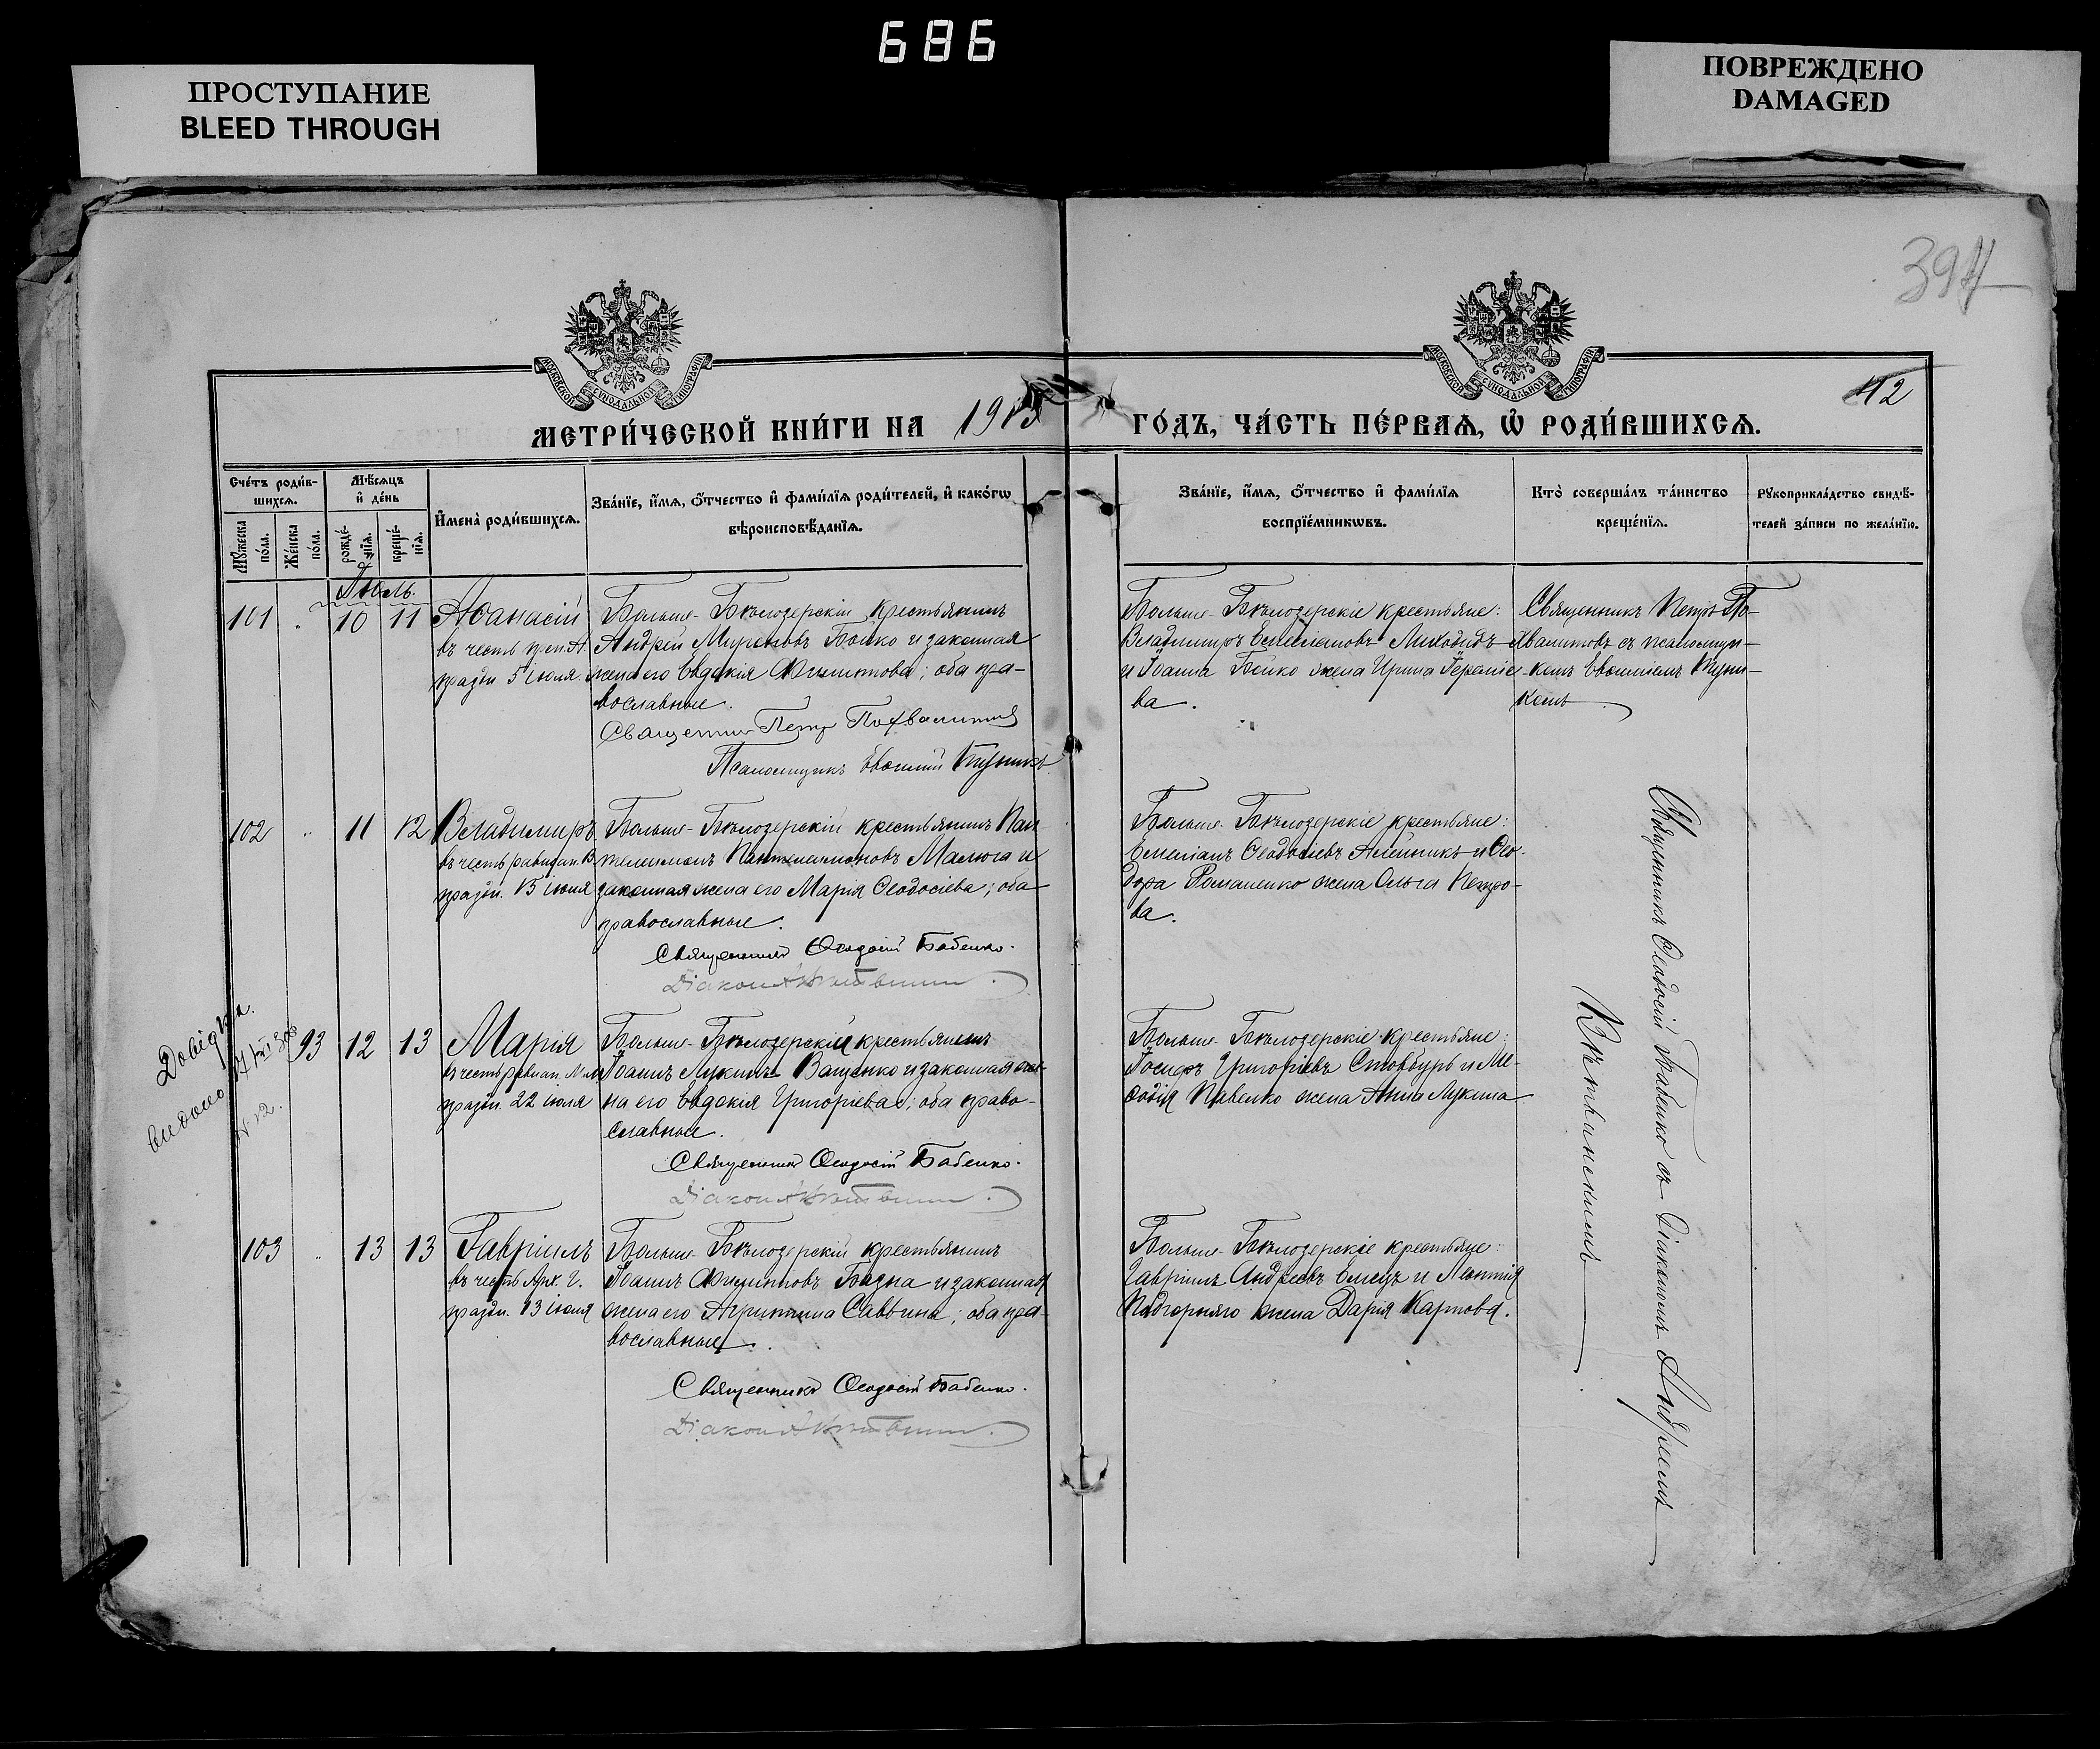 686
ПРОСТУПАНИЕ
BLEED THROUGH
ПОВРЕЖДЕНО
DAMAGED
394
МОСКОВСКОЙ СѴНОДАЛЬНОЙ ТИПОГРАФІИ
МОСКОВСКОЙ СѴНОДАЛЬНОЙ ТИПОГРАФІИ
42
МЕТРИ́ЧЕСКОЙ КНИ́ГИ НА 1913 ГО́ДЪ, ЧА́СТЬ ПЕ́РВАѦ, Ѡ҆ РОДИ́ВШИХСѦ.
Сче́тъ роди́в-
шихсѧ.
Мꙋ́жеска
по́ла.
Же́нска
по́ла.
Мѣ́сѧцъ
и҆ де́нь
рожде́-
нїѧ.
креще́-
нїѧ.
И҆мена̀ роди́вшихсѧ.
Зва́нїе, и҆́мѧ, ѻ҆́тчество и҆ фами́лїѧ роди́телей, и҆ како́гѡ
вѣроисповѣ́данїѧ.
Зва́нїе, и҆́мѧ, ѻ҆́тчество и҆ фами́лїѧ
воспрїе́мникѡвъ.
Кто̀ соверша́лъ та́инство
креще́нїѧ.
Рꙋкоприкла́дство свидѣ́-
телей за́писи по жела́нїю.
Іюль.
101 " 10 11
Аѳанасій
въ честь преп. А.
праздн 5 іюля
Больше-Бѣлозерскій крестьянинъ
Андрей Мироновъ Бойко и законная
жена его Евдокія Филиппова; оба пра-
вославные.
Священникъ Петръ Похвалитовъ
Псаломщикъ Евѳимій
Больше-Бѣлозерскіе крестьяне:
Владимиръ Емеліановъ Лиходидъ
и Іоанна Бойко жена Ирина Гераніе-
ва.
Священникъ Петръ По-
хвалитовъ съ псаломщи-
комъ Евѳиміемъ
102 " 11 12
Владимиръ
въ честь равноап. В
праздн. 15 іюля
Больше-Бѣлозерскій крестьянинъ Пан
телеимонъ Пантелеимоновъ Малюга и
законная жена его Марія Ѳеодосіева; оба
православные.
Священникъ Ѳеодосій Бабенко.
Діаконъ
Больше-Бѣлозерскіе крестьяне:
Емеліанъ Ѳеодосіевъ Алейникъ и Ѳео-
дора Романенко жена Ольга Петро-
ва.
Священникъ Ѳеодосій Бабенко съ Діакономъ Андреемъ
Довідка
видано
N 12.
93 12 13
Марія
въ честь равноап. М.
праздн. 22 іюля
Больше-Бѣлозерскій крестьянинъ
Іоаннъ Лукинъ Ващенко и законная же-
на его Евдокія Григоріева; оба право-
славные.
Священникъ Ѳеодосій Бабенко.
Діаконъ
Больше-Бѣлозерскіе крестьяне:
Іосифъ Григоріевъ Стовбуръ и Ме-
ѳодія Павенко жена Анна Лукина
103 " 13 13
Гавріилъ
въ честь Арх. Г.
праздн. 13 іюля
Больше-Бѣлозерскій крестьянинъ
Іоаннъ Филипповъ Бидна и законная
жена его Агриппина Саввина; оба пра-
вославные.
Священникъ Ѳеодосій Бабенко.
Діаконъ
Больше-Бѣлозерскіе крестьяне:
Гавріилъ Андреевъ Емецъ и Леонтія
Пидгорняго жена Дарія Карпова.